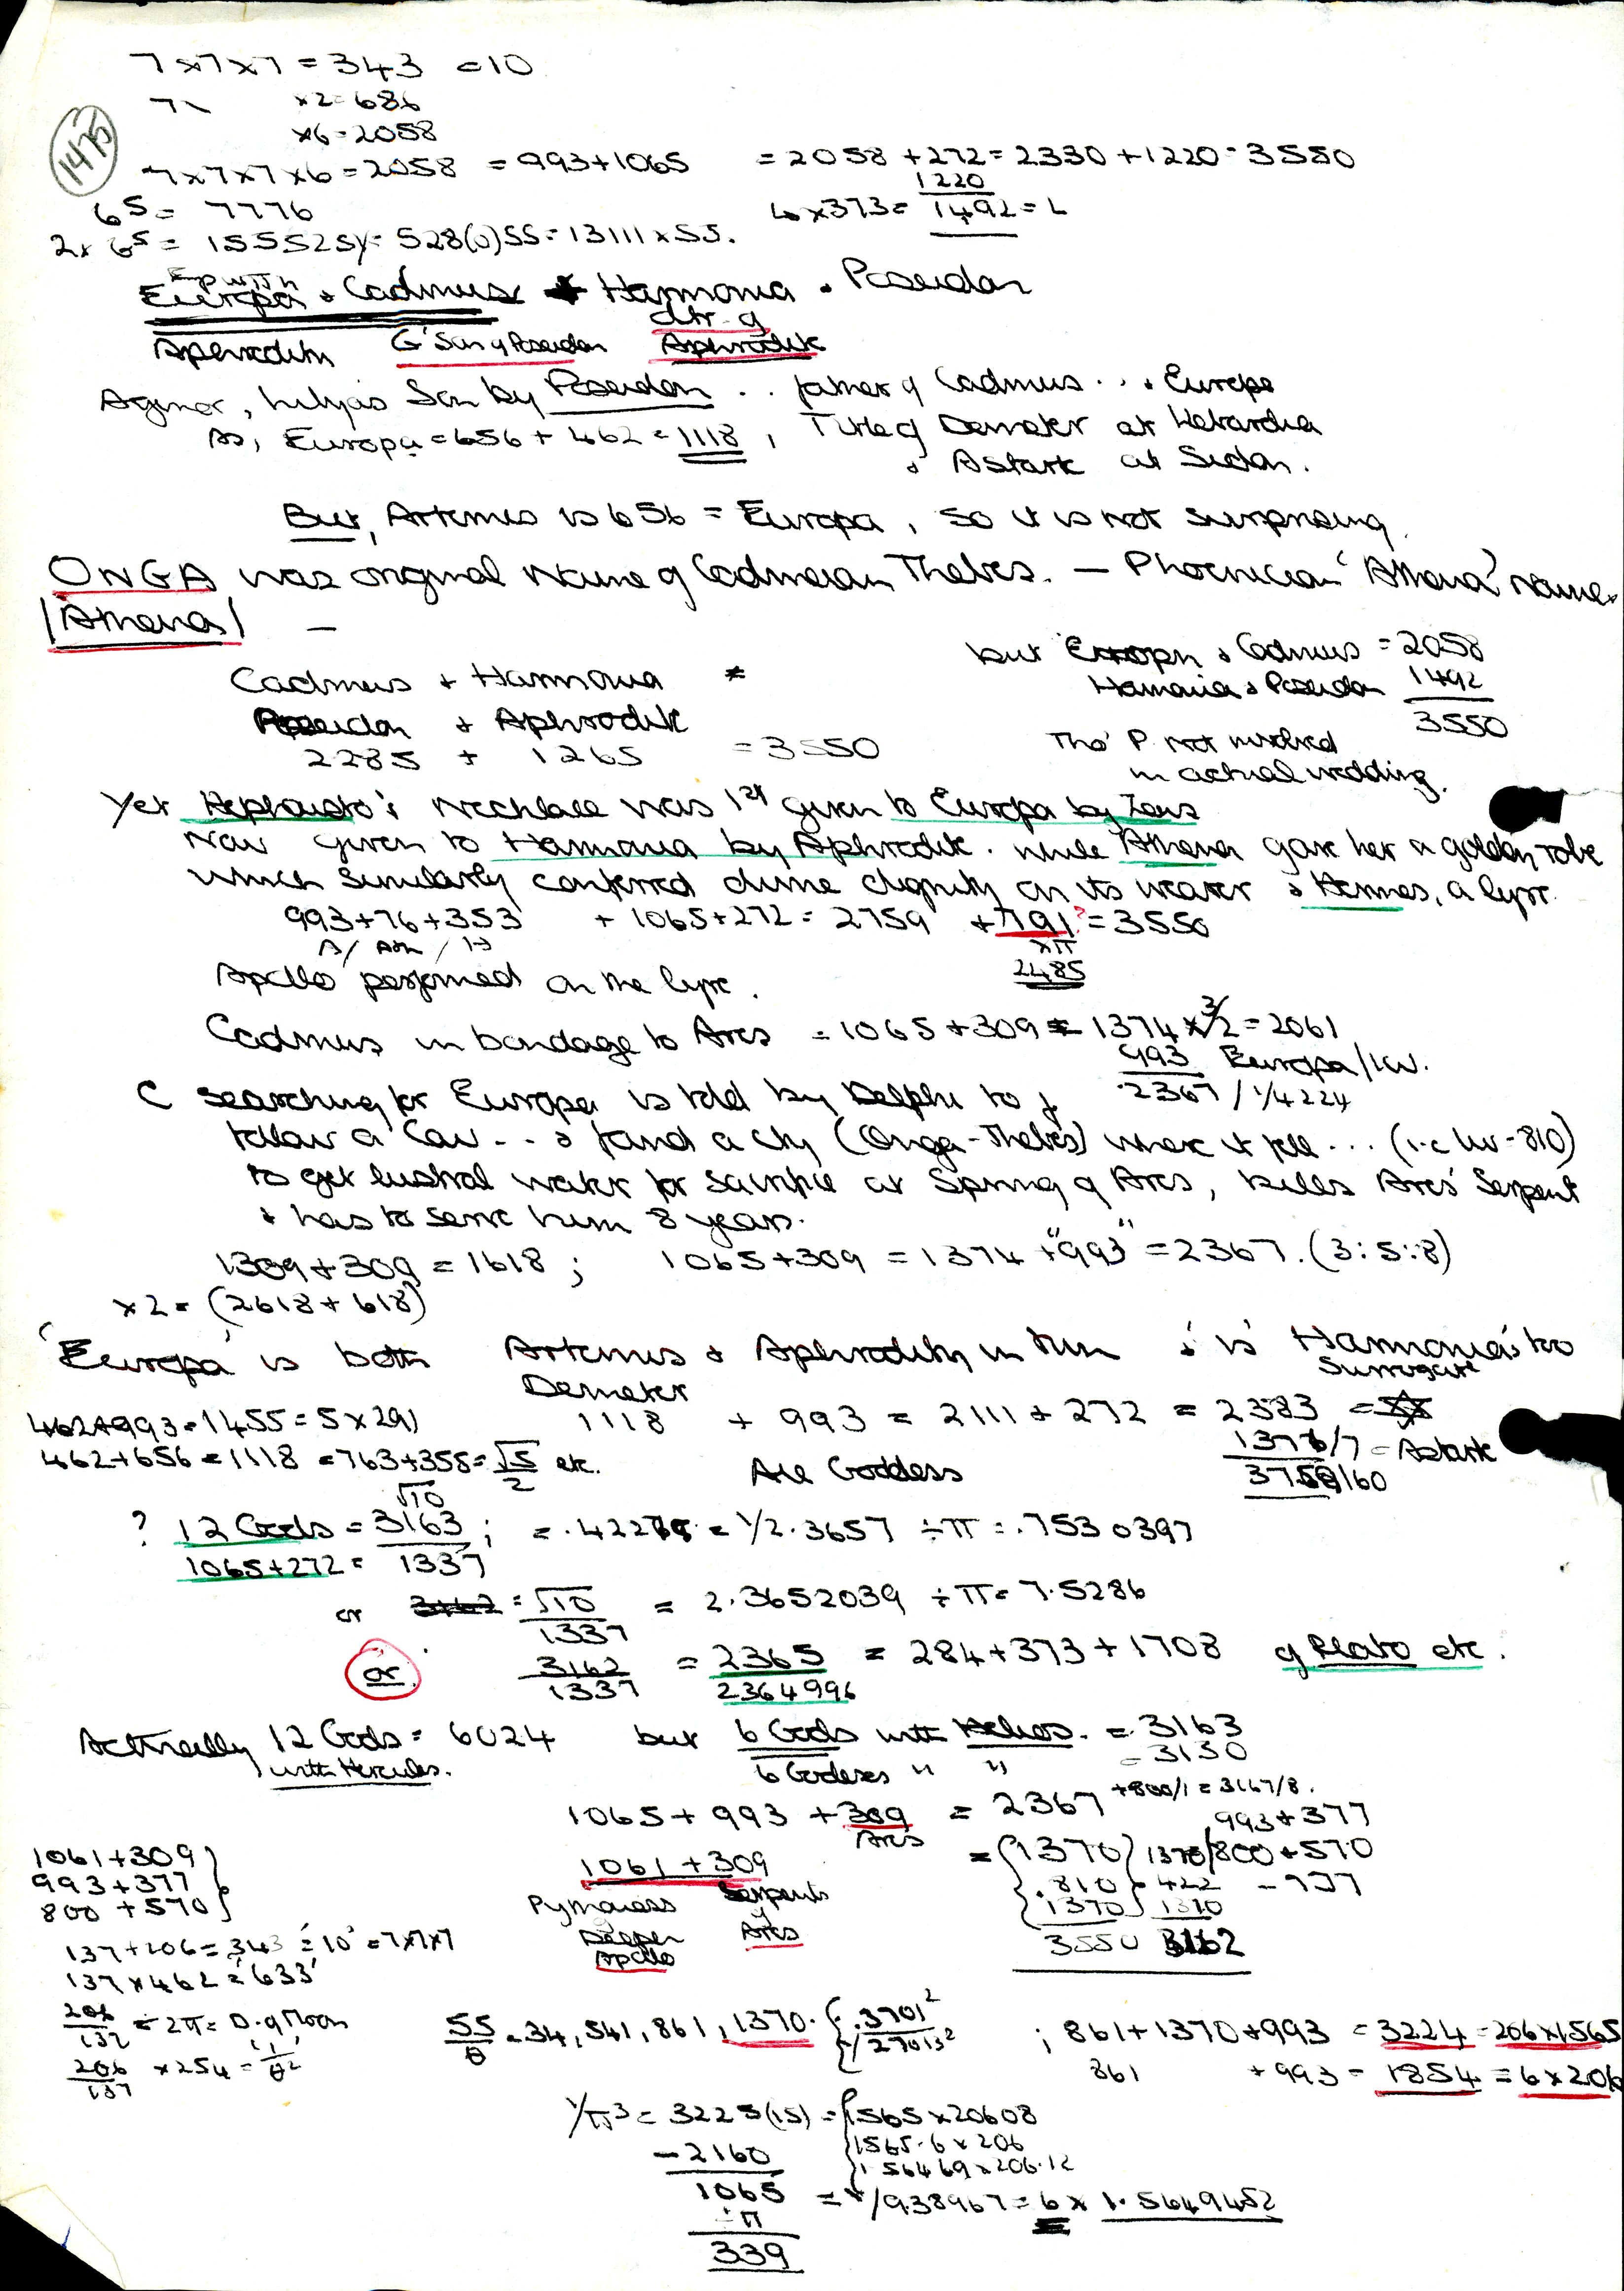 7×7×7 = 343 = 10
×2=686
1475
×6=2058
7×7×7×6=2058 = 993+1065 = 2058+272=2330+1220=3550
1220
6⁵= 7776 4×373= 1492=
2×6⁵= 15552 = 528(0)55=13111×55.
Europa & Cadmus Harmonia & Poseidon
Aphrodity G'Son of Poseidon dtr of Aphrodite
Agenor, Libya's Son by Poseidon .. father of Cadmus... & Europa
As, Europa=656+462=1118, Title of Demeter at
& Astarte at Sidon.
But, Artemis is 656 = Europa, so it is not surprising.
ONGA was original Name of Cadmean Thebes. — Phoenician 'Athena' name.
|Athena| —
but Europa & Cadmus = 2058
Cadmus & Harmonia
Harmonia & Poseidon 1492
Poseidon & Aphrodite
3550
2285 + 1265 = 3550
Tho' P. not involved
in actual wedding.
Yet Hephaisto's necklace was 1st given to Europa by Zeus
Now given to Harmonia by Aphrodite. while Athena gave her a golden robe
which similarly conferred divine dignity on its wearer & Hermes, a lyre.
993+76+353 + 1065+272 = 2759 + 791? = 3550
A/ Ath / H
×π
Apollo performed on the lyre.
2485
Cadmus in bondage to Ares = 1065+309 = 1374×3/2=2061
993 Europa/
2367 / 1/4224
C searching for Europa is told by Delphi to
follow a Cow... & found a city (Onga-Thebes) where it fell... (i.e. -810)
to get lustral water for sacrifice at Spring of Ares, kills Ares' Serpent
& has to serve him 8 years.
1309+309=1618; 1065+309 = 1374+"993" = 2367. (3:5::8)
×2= (2618+618)
'Europa' is both Artemis & Aphrodity in turn & is Harmonia's too
Demeter Surrogate
462+993=1455=5×291 1118 + 993 = 2111+272 = 2383 =
462+656=1118=763+355=√5/2 etc. All Goddess 1376/7 = Astarte
√10
? 12 Gods = 3163; = .42275 = 1/2.3657 ÷π = .7530397
1065+272= 1337
or = √10/1337 = 2.3652039 ÷π= 7.5286
or 3162/1337 = 2365 = 284+373+1708 of Plato etc.
2364996
Actually 12 Gods = 6024 but 6 Gods with Helios. = 3163
with Hercules. 6 Godesses " " = 3130
1065+ 993 +309 = 2367 +800/1=3167/8.
Ares 993+377
1061+309 1061+309 = 1370 1370/800+570
993+377 Pymaness Serpents 810 422 = 937
800+570 Deeper Ares 1370 1370
Apollo 3550 3162
137+206=343='10'=7×7×7
137×462='633'
206/137 = 2π= D. of Moon 55/θ = 34,541,861,1370. .3701²/ 27013² ; 861+1370+993 = 3224=206×1565
206/137 ×254=1/θ² 861 +993 = 1854 =6×206
1/π³= 3225(15) = 1565×20608
-2160 1565.6×206
1.56469×206.12
1065 = /9.38967=6×1.5649452
÷π
339